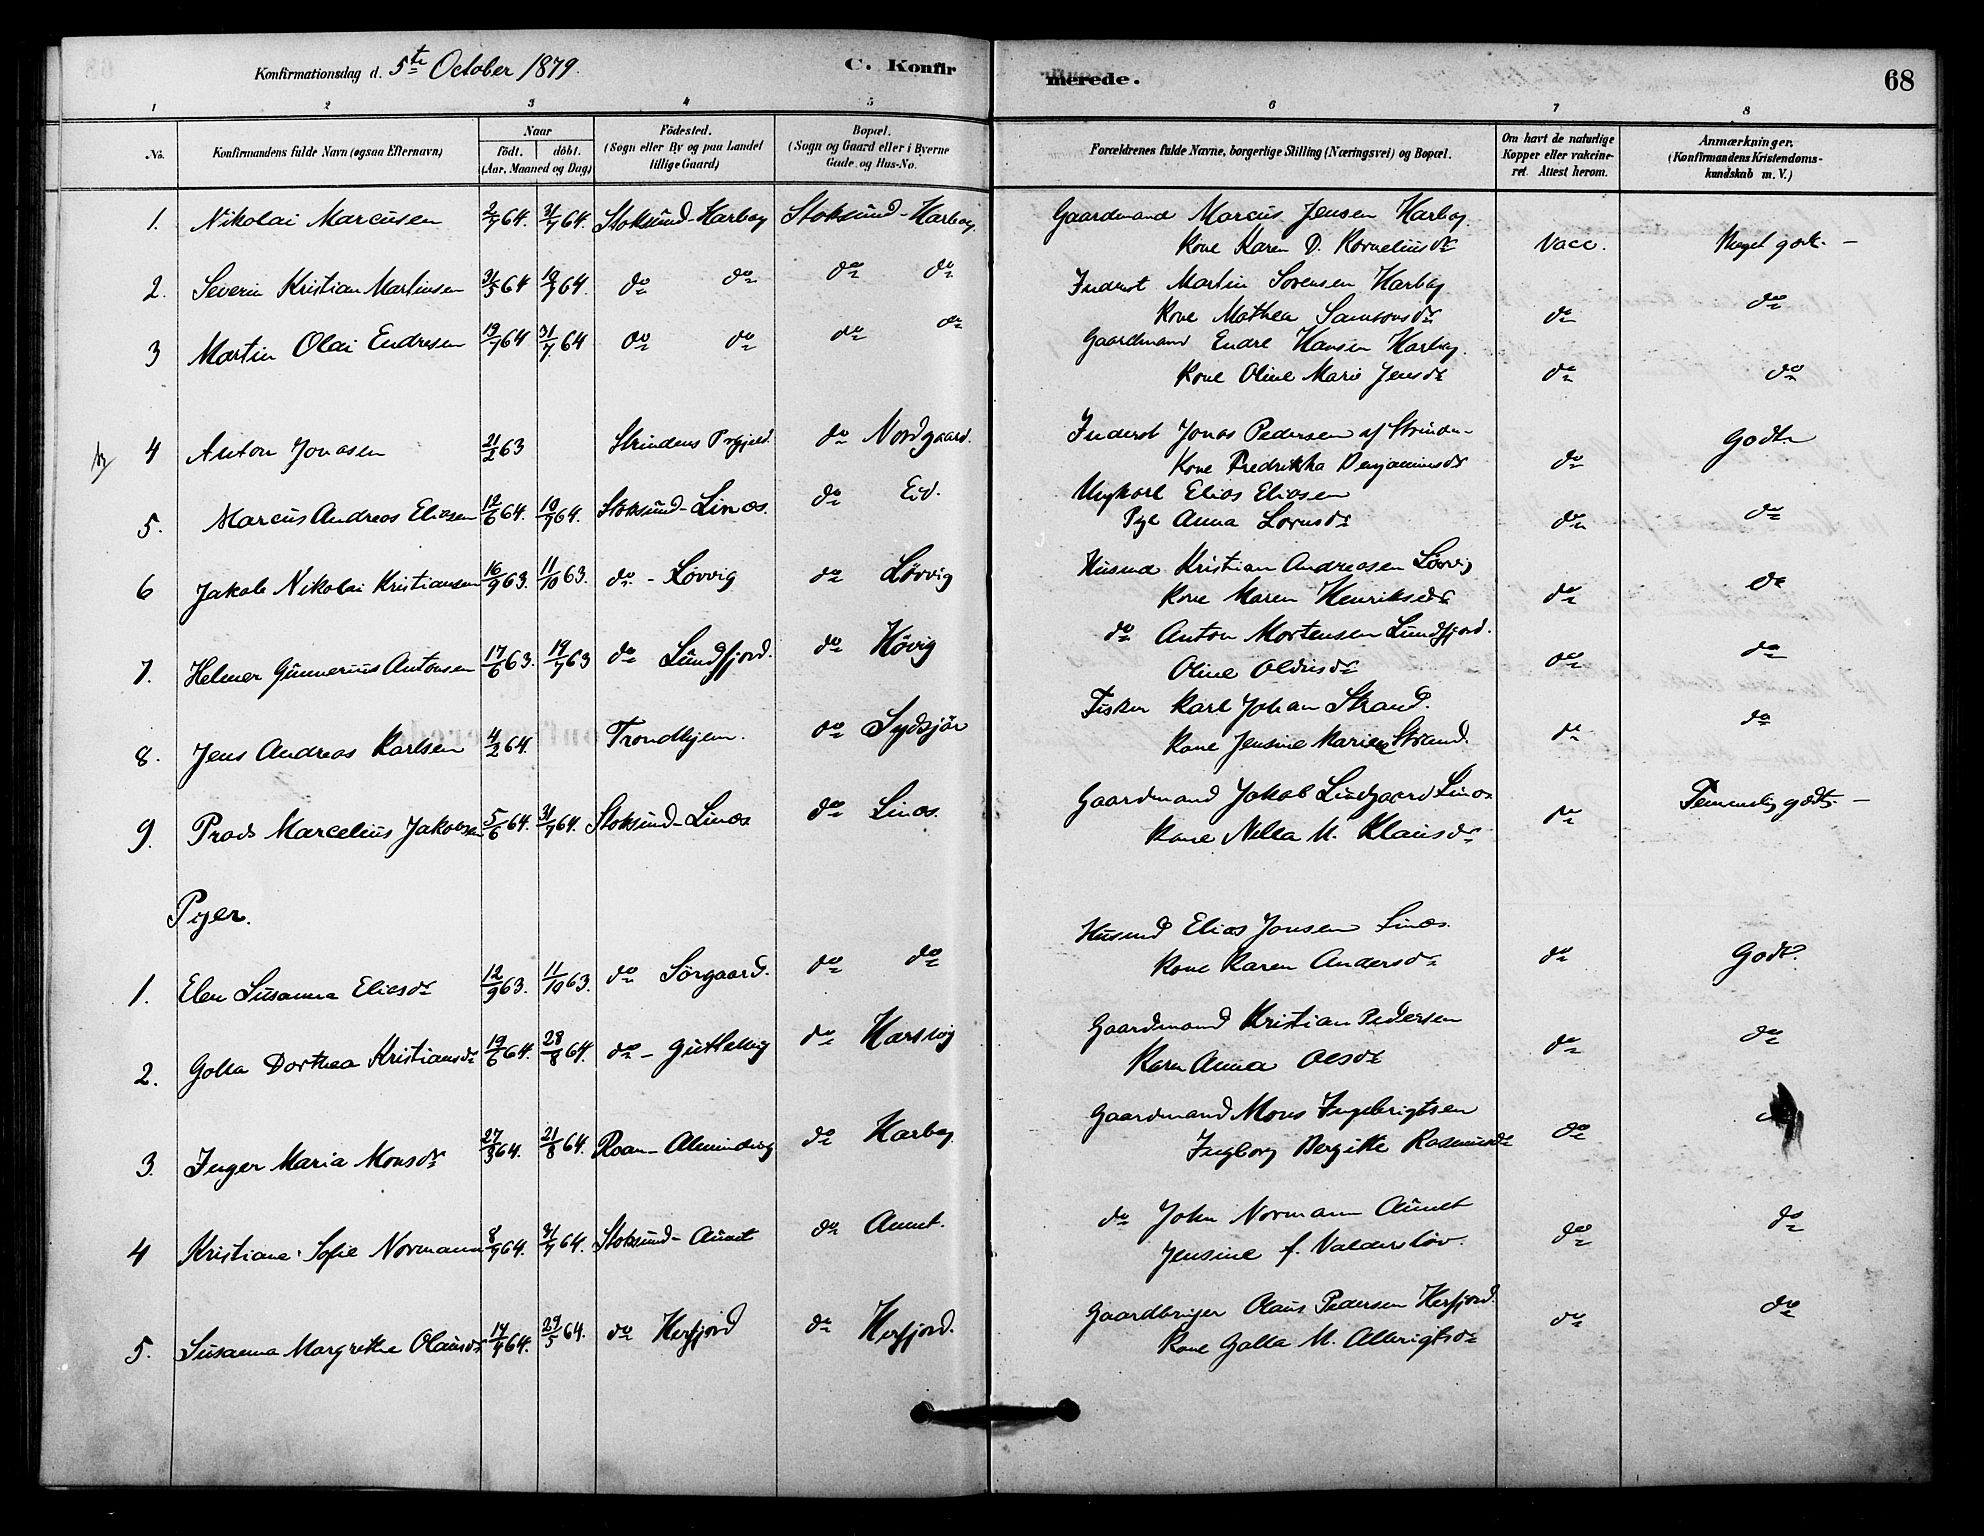 Konfirmationsdag d. 5te October 1879.
C. Konfir
merede.
68
1 2 3 4 5 6 7 8
No.
Konfirmandens fulde Navn (ogsaa Efternavn)
Naar
födt. döbt.
(Aar, Maaned og Dag)
Födested.
(Sogn eller By og paa Landet
tillige Gaard)
Bopæl.
(Sogn og Gaard eller i Byerne
Gade og Hus-No.
Forældrenes fulde Navne, borgerlige Stilling (Næringsvei) og Bopæl.
Om havt de naturlige
Kopper eller vakcine-
ret. Attest herom.
Anmærkninger.
(Konfirmandens Kristendoms-
kundskab m. V.)
1. Nikolai Marcusen 2/7 64. 31/7 64. Stoksund-Harbog Stoksund-Harbog Gaardmand Marcus Jensen Harbog
Kone Karen D. Kornelius dr Vacc. Meget godt. –
2. Severin Kristian Martinsen 31/5 64 10/7 64. do do do do Inderst Martin Sorensen Harbog
Kone Mathea Samsons dr do do
3 Martin Olai Endresen 19/7 64 31/7 64 do do do do Gaardmand Endre Hansen Harbog.
Kone Oline Marie Jens dr do do
4 Anton Jonasen 21/2 63 Strindens Prgjeld. do Nordgaard. Inderst Jonas Pedersen af Strinden
Kone Fredrikka Benjamins dr do Godt
5. Marcus Andreas Eliasen 12/6 64. 10/7 64. Stoksund-Linæs. do Eid. Ungkarl Elias Eliasen
Pge Anna Lorns dr do do
6 Jakob Nikolai Kristiansen 16/9 63. 11/10 63. do - Lövvig do Lövvig Husmd Kristian Andreasen Lövvig
Kone Maren Henriks dr do do
7. Helmer Gunnerius Antonsen 17/6 63. 19/7 63 do Lundfjord. do Hövig do Anton Mortensen Lundfjord.
Oline Oldus dr do do
8. Jens Andreas Karlsen 4/2 64. Trondhjem. do Sydsjör Fisker Karl Johan Strand.
Kone Jensine Marie Strand. do do
9. Prads Marcelius Jakobsen 5/6 64. 31/7 64. Stoksund-Linæs do Linæs. Gaardmand Jakob Lindgaard Linæs
Kone Nella M. Klaus dr do Temmelig godt. –
Piger.
1. Elen Susanna Elias dr 12/9 63. 11/10 63. do Sörgaard. do do Husmd Elias Jonsen Linæs.
Kone Karen Anders dr do Godt.
2. Golla Dorthea Kristians dr 19/6 64. 28/8 64. do - Guttelvig do Harsvig Gaardmand Kristian Pedersen
Karen Anna Ols dr do do
3. Inger Maria Mons dr 27/3 64. 21/8 64. Roan-Almindvig do Harbog Gaardmand Mons Ingebrigtsen
Ingborg Bergitte Rasmus dr do
4 Kristiane Sofie Normann 8/7 64. 31/7 64. Stoksund-Aunet do Aunet. do John Normann Aunet
Jensine f. Valderslöv. do do
5. Susanna Margrethe Olaus dr 14/4 64. 29/5 64. do Herfjord do Herfjord. Gaardbruger Olaus Pedersen Herfjord.
Kone Golla M. Albrigts dr do do